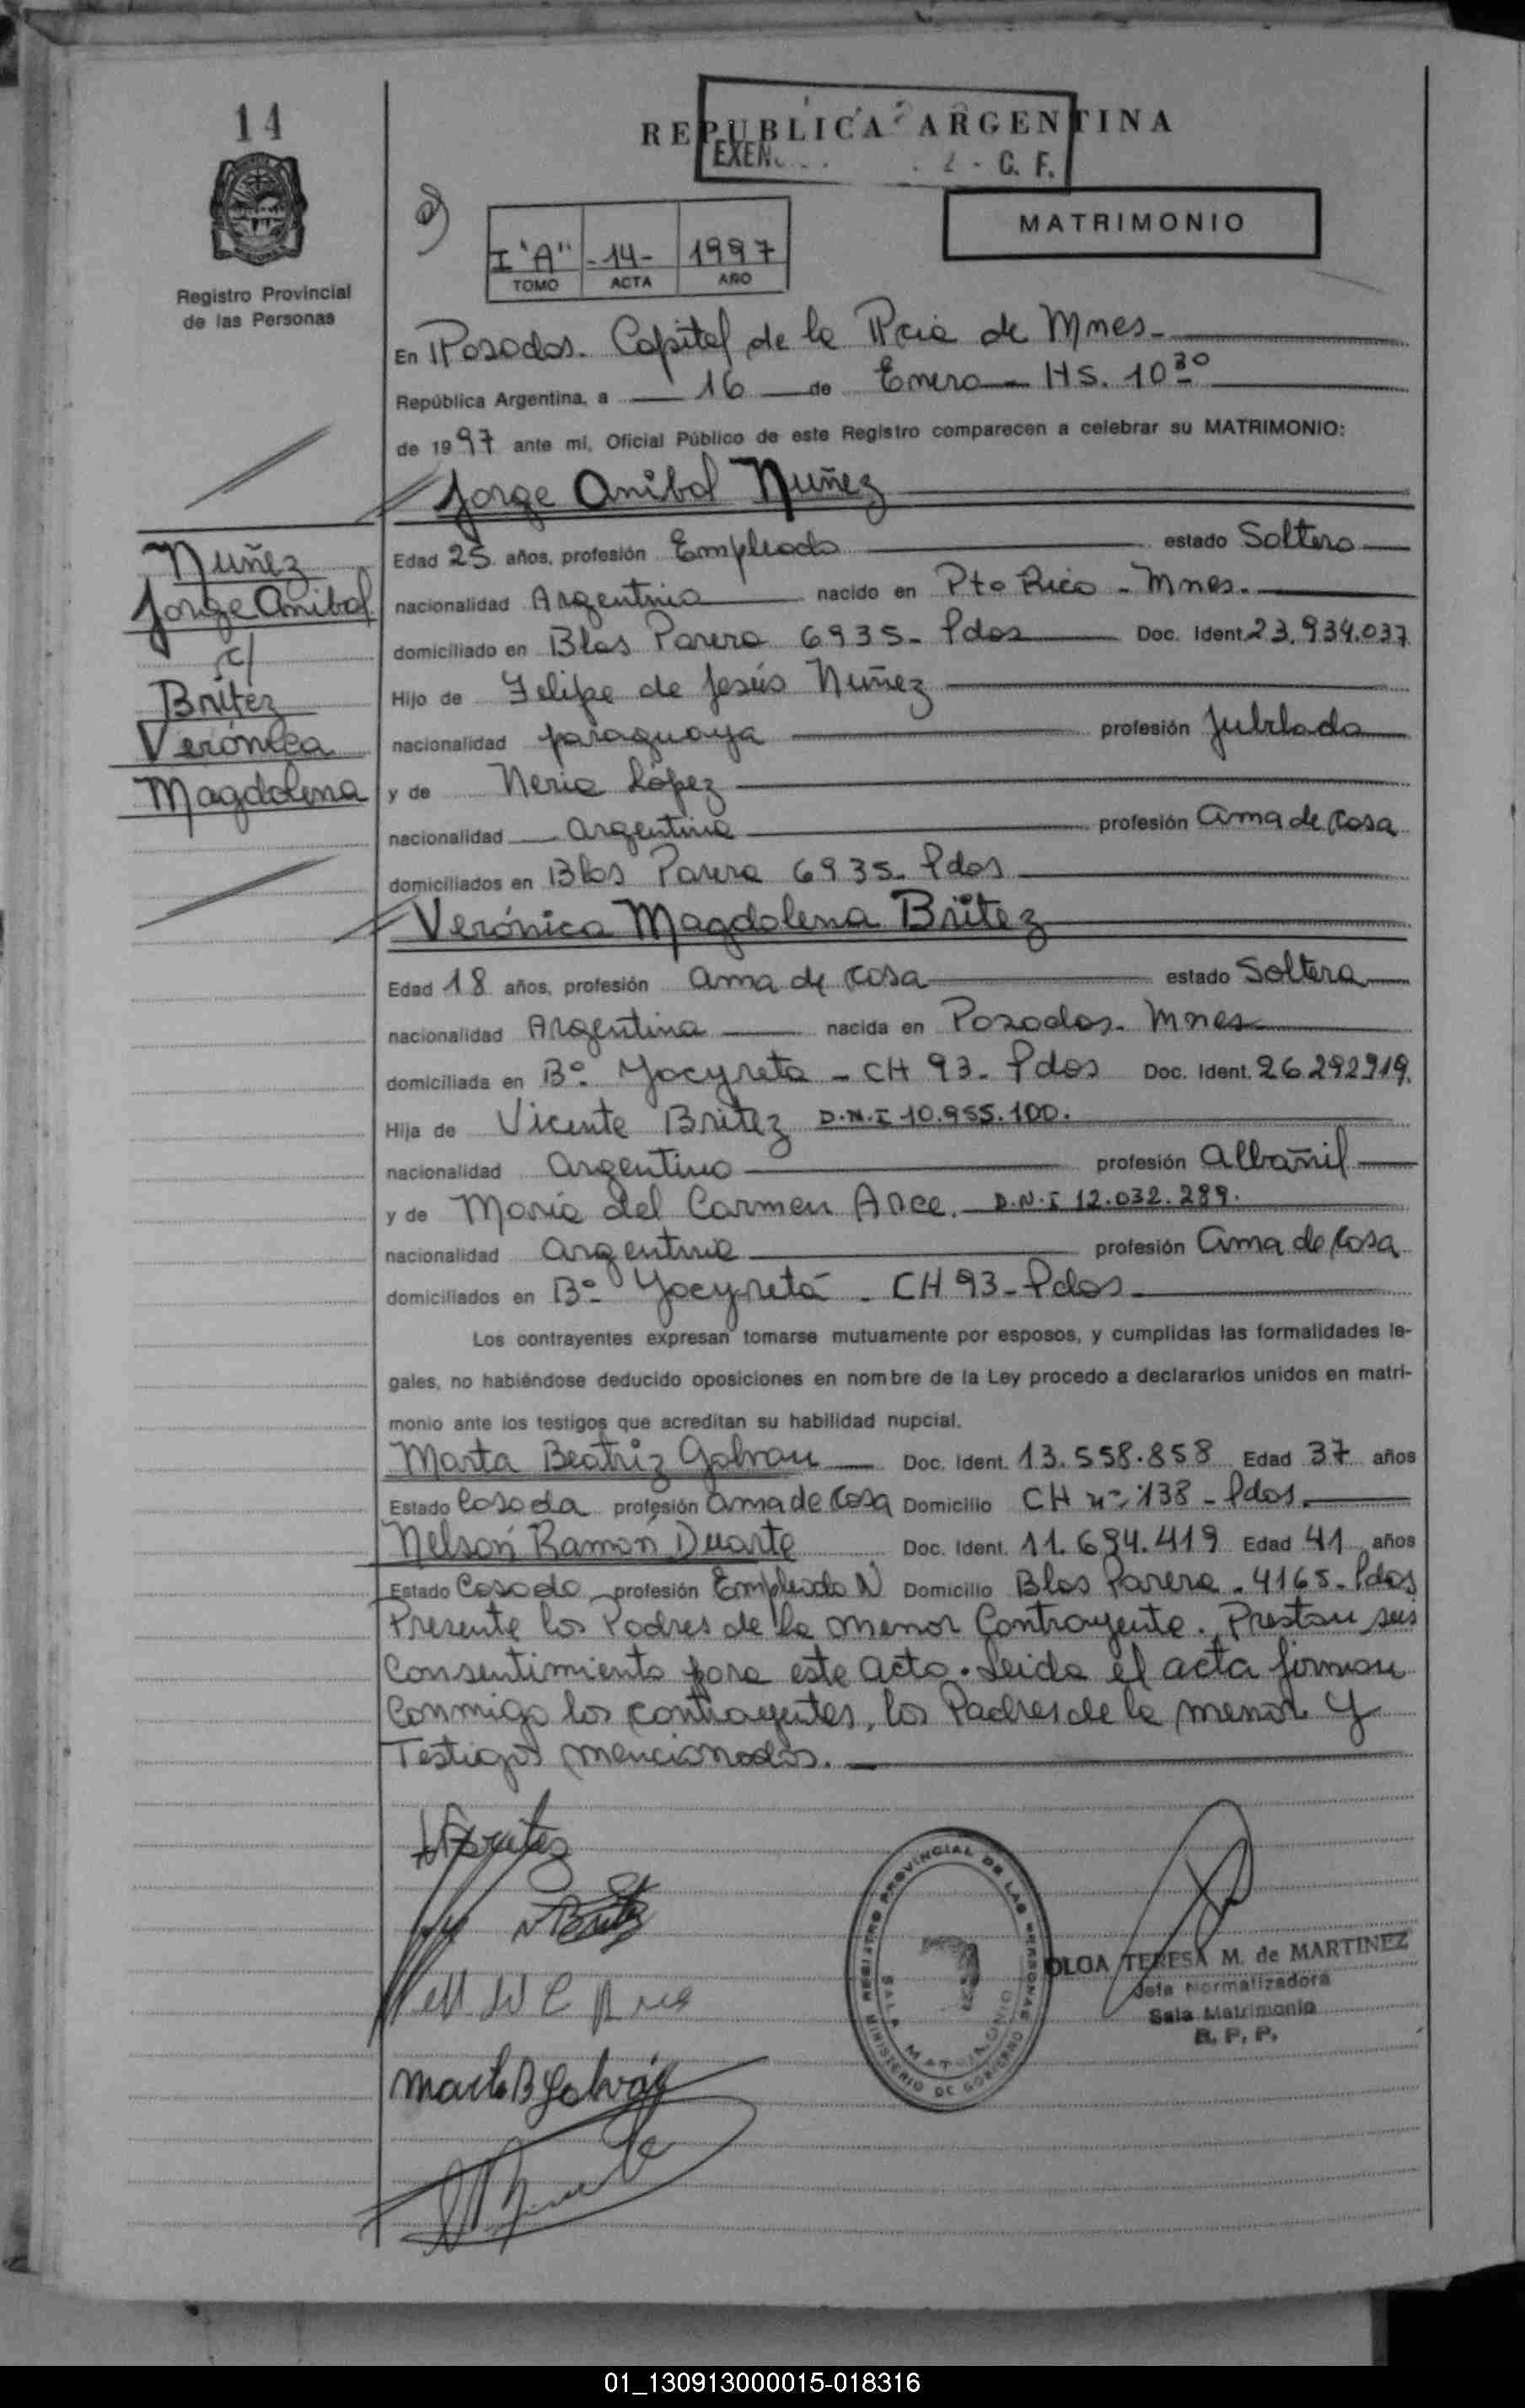 14
REPUBLICA ARGENTINA
EXEN
C. F.
MATRIMONIO
I "A" - 14 - 1997
TOMO ACTA AÑO
Registro Provincial
de las Personas
En Posadas. Capital de la Pcia de Mnes.
República Argentina, a 16 de Enero - HS. 10 30
de 1997 ante mí, Oficial Público de este Registro comparecen a celebrar su MATRIMONIO:
Jorge Anibal Nuñez
Nuñez
Jorge Anibal
c/
Britez
Verónica
Magdalena
Edad 25 años, profesión Empleado estado Soltero
nacionalidad Argentina nacido en Pto Rico - Mnes.
domiciliado en Blas Parera 6935 - Pdas Doc. Ident. 23.934.037
Hijo de Felipe de Jesús Nuñez
nacionalidad paraguaya profesión Jubilado
y de Neria López
nacionalidad argentina profesión ama de casa
domiciliados en Blas Parera 6935 - Pdas
Verónica Magdalena Britez
Edad 18 años, profesión ama de casa estado Soltera
nacionalidad Argentina nacida en Posadas - Mnes
domiciliada en Bº Yacyreta - CH 93 - Pdas Doc. Ident. 26.292.919.
Hija de Vicente Britez D.N.I 10.955.100.
nacionalidad argentino profesión albañil
y de María del Carmen Arce. D.N.I 12.032.289.
nacionalidad argentina profesión ama de casa
domiciliados en Bº Yacyretá - CH 93 - Pdas
Los contrayentes expresan tomarse mutuamente por esposos, y cumplidas las formalidades le-
gales, no habiéndose deducido oposiciones en nombre de la Ley procedo a declararlos unidos en matri-
monio ante los testigos que acreditan su habilidad nupcial.
Marta Beatriz Galvan Doc. Ident. 13.558.858 Edad 37 años
Estado Casada profesión ama de casa Domicilio CH nº 138 - Pdas.
Nelson Ramón Duarte Doc. Ident. 11.694.419 Edad 41 años
Estado Casado profesión Empleado N Domicilio Blas Parera - 4165 - Pdas
Presente los Padres de la menor Contrayente. Prestan sus
Consentimiento para este acto. Leida el acta firman
Conmigo los contrayentes, los Padres de la menor y
Testigos mencionados.
Marta B Galván
REGISTRO PROVINCIAL DE LAS PERSONAS
SALA MATRIMONIO
MINISTERIO DE GOBIERNO
OLGA TERESA M. de MARTINEZ
Jefa Normalizadora
Sala Matrimonio
R. P. P.
01_130913000015-018316